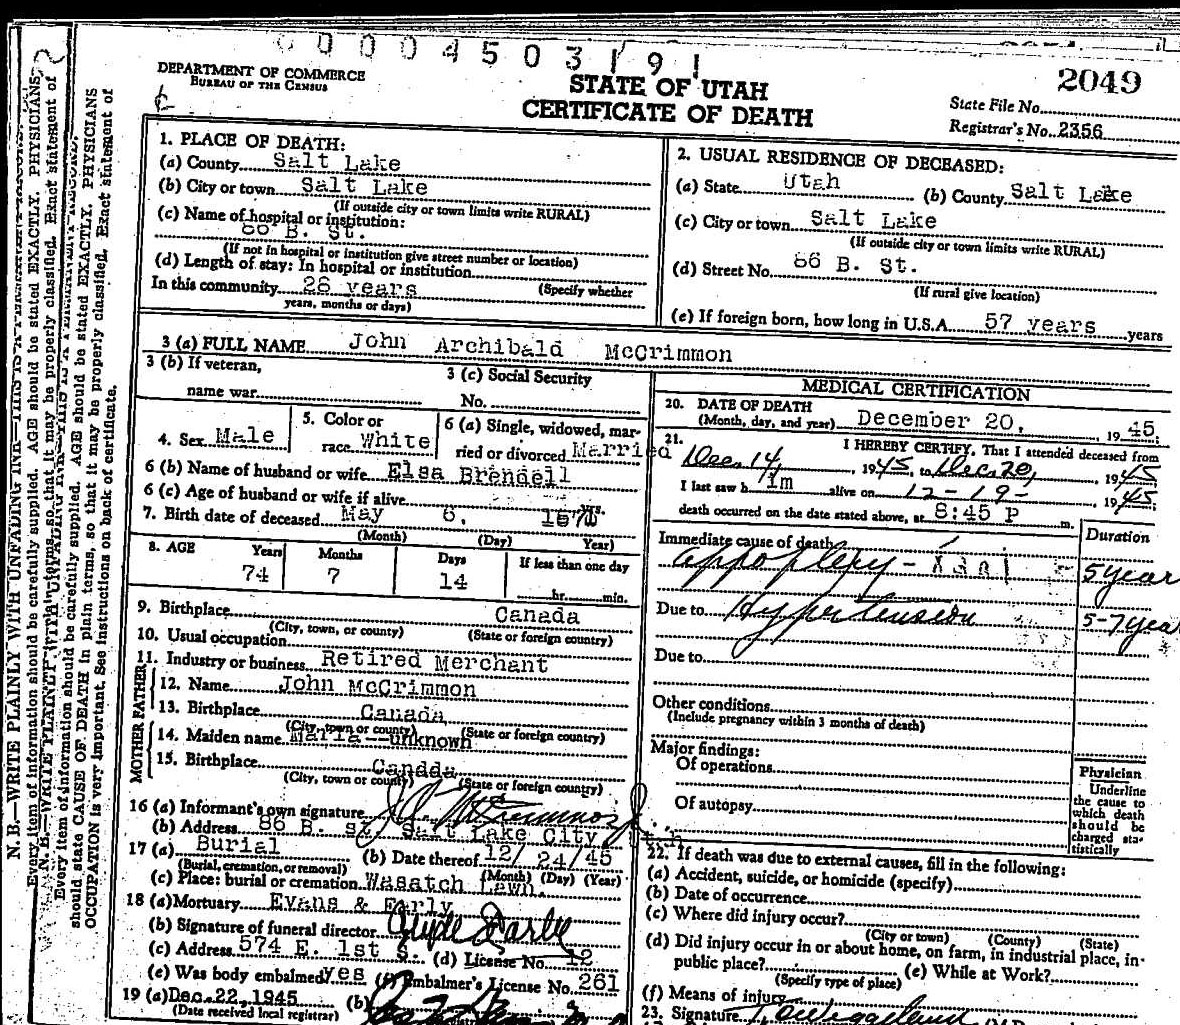 00004503191
DEPARTMENT OF COMMERCE
BUREAU OF THE CENSUS
STATE OF UTAH
CERTIFICATE OF DEATH
2049
State File No.
Registrar's No. 2356
1. PLACE OF DEATH:
(a) County Salt Lake
(b) City or town Salt Lake
(If outside city or town limits write RURAL)
(c) Name of hospital or institution:
B. St.
(If not in hospital or institution give street number or location)
(d) Length of stay: In hospital or institution
(Specify whether
In this community 26 years
years, months or days)
2. USUAL RESIDENCE OF DECEASED:
(a) State Utah (b) County Salt Lake
(c) City or town Salt Lake
(If outside city or town limits write RURAL)
(d) Street No. 86 B. St.
(If rural give location)
(e) If foreign born, how long in U.S.A. 57 years years
3 (a) FULL NAME John Archibald McCrimmon
3 (b) If veteran,
name war
3 (c) Social Security
No.
4. Sex Male
5. Color or
race White
6 (a) Single, widowed, mar-
ried or divorced Married
6 (b) Name of husband or wife Elsa Brendell
6 (c) Age of husband or wife if alive yrs.
7. Birth date of deceased May 6,
(Month) (Day) Year)
8. AGE Years Months Days If less than one day
74 7 14 hr. min.
9. Birthplace Canada
(City, town, or county) (State or foreign country)
10. Usual occupation
11. Industry or business Retired Merchant
FATHER
12. Name John McCrimmon
13. Birthplace Canada
(City, town or county) (State or foreign country)
MOTHER
14. Maiden name Maria--unknown
15. Birthplace Canada
(City, town or county) (State or foreign country)
16 (a) Informant's own signature J. A. McCrimmon Jr.
(b) Address 86 B. st, Salt Lake City, Utah
17 (a) Burial (b) Date thereof 12/ 24/45
(Burial, cremation, or removal) (Month) (Day) (Year)
(c) Place: burial or cremation Wasatch Lawn.
18 (a) Mortuary Evans & Early
(b) Signature of funeral director Clyde Early
(c) Address 574 E. 1st S. (d) License No. 12
(e) Was body embalmed? Yes (f) Embalmer's License No. 261
19 (a) Dec. 22, 1945 (b)
(Date received local registrar)
MEDICAL CERTIFICATION
20. DATE OF DEATH
(Month, day, and year) December 20, 1945
21. I HEREBY CERTIFY, That I attended deceased from
Dec. 14, 1945 to Dec. 20, 1945
I last saw h im alive on 12-19- 1945;
death occurred on the date stated above, at 8:45 P m.
Immediate cause of death
Duration
appoplexy - 5 year
Due to Hypertension 5-7 year
Due to
Other conditions
(Include pregnancy within 3 months of death)
Major findings:
Of operations
Of autopsy
Physician
Underline
the cause to
which death
should be
charged sta-
tistically
22. If death was due to external causes, fill in the following:
(a) Accident, suicide, or homicide (specify)
(b) Date of occurrence
(c) Where did injury occur?
(City or town) (County) (State)
(d) Did injury occur in or about home, on farm, in industrial place, in-
public place?
(Specify type of place)
(e) While at Work?
(f) Means of injury
23. Signature
N. B.—WRITE PLAINLY WITH UNFADING INK—THIS IS A PERMANENT RECORD.
Every item of information should be carefully supplied. AGE should be stated EXACTLY. PHYSICIANS
should state CAUSE OF DEATH in plain terms, so that it may be properly classified. Exact statement of
OCCUPATION is very important. See instructions on back of certificate.